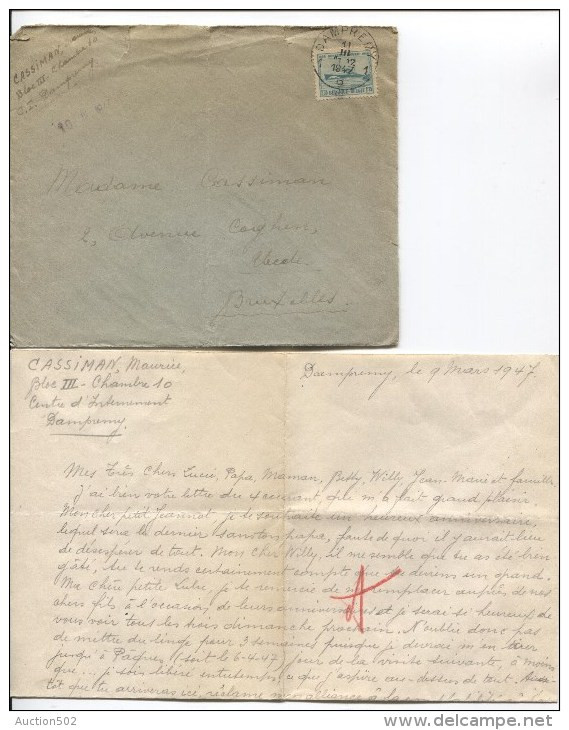 CASSIMAN,
Bloc III Chambre 10
C.I. Dampremy
DAMPREMY
1947
Madame Cassiman
2, Avenue Coghen,
Uccle
Bruxelles
CASSIMAN, Maurice,
Bloc III - Chambre 10
Centre d'Internement
Dampremy
Dampremy, le 9 Mars 1947
Mes Très Chers Lucie, Papa, Maman, Betty, Willy, Jean-Marie et famille
J'ai bien votre lettre du 4 courant, que m'a fait grand plaisir.
Mon cher petit Jeannot je te souhaite un heureux anniversaire,
lequel sera le dernier sans ton papa, faute de quoi il y aurait lieu
de désespérer de tout. Mon Cher Willy, il me semble que tu as été bien
gâté, tu te rends certainement compte que tu deviens un grand.
Ma chère petite Lulu, je te remercie de me remplacer auprès de nos
chers fils à l'occasion de leurs anniversaires et je serai si heureux de
vous voir tous les trois dimanche prochain. N'oublie donc pas
de mettre du linge pour 3 semaines puisque je devrai m'en tirer
jusqu'à Pâques (soit le 6-4-47) jour de la visite suivante, à moins
que... je sois libéré entretemps, ce que j'espère au-dessus de tout.
tôt que tu arriveras ici, réclame mon alliance à la
Auction502
delcampe.net